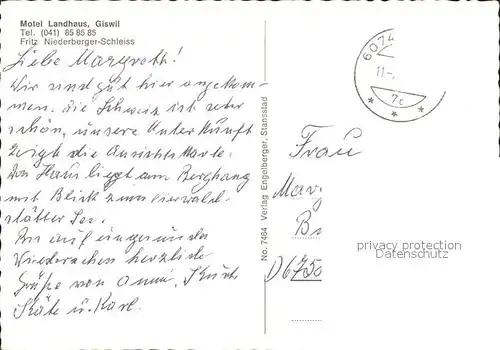 Motel Landhaus, Giswil
Tel. (041) 85 85 85
Fritz Niederberger-Schleiss
Liebe Margreth!
Wir sind gut hier angekom-
men. die Schweiz ist sehr
schön, unsere Unterkunft
zeigt die Ansichtskarte.
Das Haus liegt am Berghang
mit Blick zum Vierwald-
stätter See.
Bis auf ein gesundes
Wiedersehen herzliche
Grüße von Anni, Kurt
Käte u. Karl.
No. 7464 Verlag Engelberger, Stansstad
6074
11.-
7c
Frau
Mar
B
D 6750
privacy protection
Datenschutz